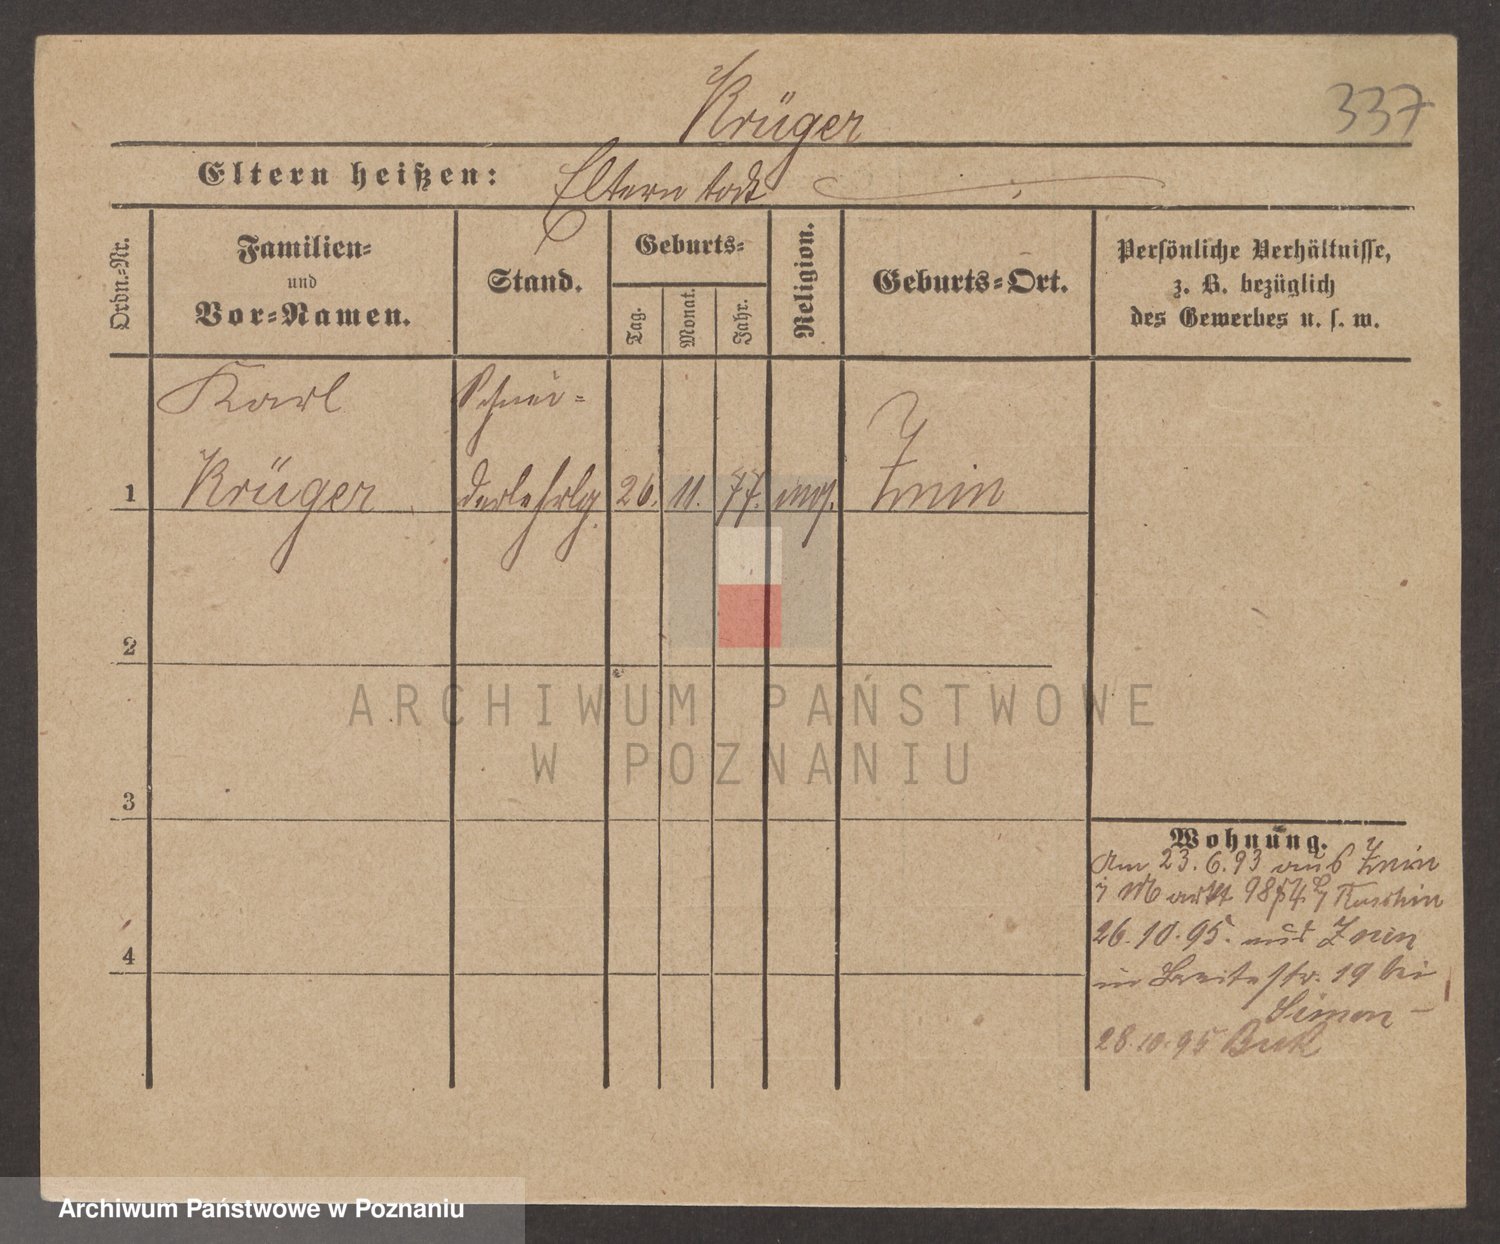 Krüger
337
Eltern heißen: Eltern todt
Ordn.-Nr.
Familien-
und
Vor-Namen.
Stand.
Geburts-
Tag.
Monat.
Jahr.
Religion.
Geburts-Ort.
Persönliche Verhältnisse,
z. B. bezüglich
des Gewerbes u. s. w.
Karl Schnei-
1 Krüger derlehrlg. 26. 11. 77. evg. Znin
2
3
4
Wohnung.
Am 23.6.93 aus Znin
Markt
26.10.95. aus Znin
in Breitestr. 19 bei
Simon
28.10.95 Buk
ARCHIWUM PAŃSTWOWE
W POZNANIU
Archiwum Państwowe w Poznaniu